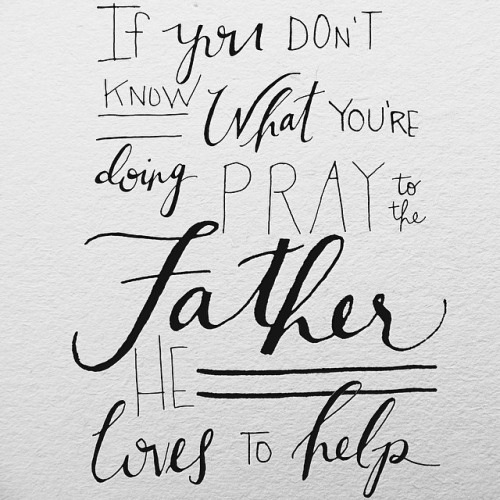 If you DON'T
KNOW What YOU'RE
doing PRAY to the
Father
HE
loves TO help